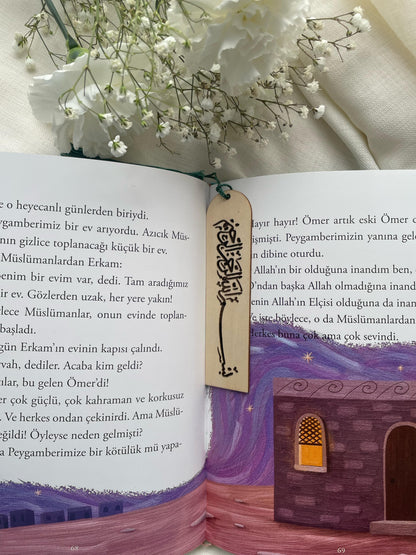 e o heyecanlı günlerden biriydi.
ygamberimiz bir ev arıyordu. Azıcık Müs-
nın gizlice toplanacağı küçük bir ev.
Müslümanlardan Erkam:
enim bir evim var, dedi. Tam aradığımız
ir ev. Gözlerden uzak, her yere yakın!
lece Müslümanlar, onun evinde toplan-
başladı.
gün Erkam'ın evinin kapısı çalındı.
vah, dediler. Acaba kim geldi?
cılar, bu gelen Ömer'di!
er çok güçlü, çok kahraman ve korkusuz
. Ve herkes ondan çekinirdi. Ama Müslü-
eğildi! Öyleyse neden gelmişti?
a Peygamberimize bir kötülük mü yapa-
68
بسم الله الرحمن الرحيم
Hayır hayır! Ömer artık eski Ömer d
işmişti. Peygamberimizin yanına gele
dibine oturdu.
Allah'ın bir olduğuna inandım ben,
'dan başka Allah olmadığına inandı
enin Allah'ın Elçisi olduğuna da inand
Ve işte böylece, o da Müslümanlardan
herkes buna çok ama çok sevindi.
69